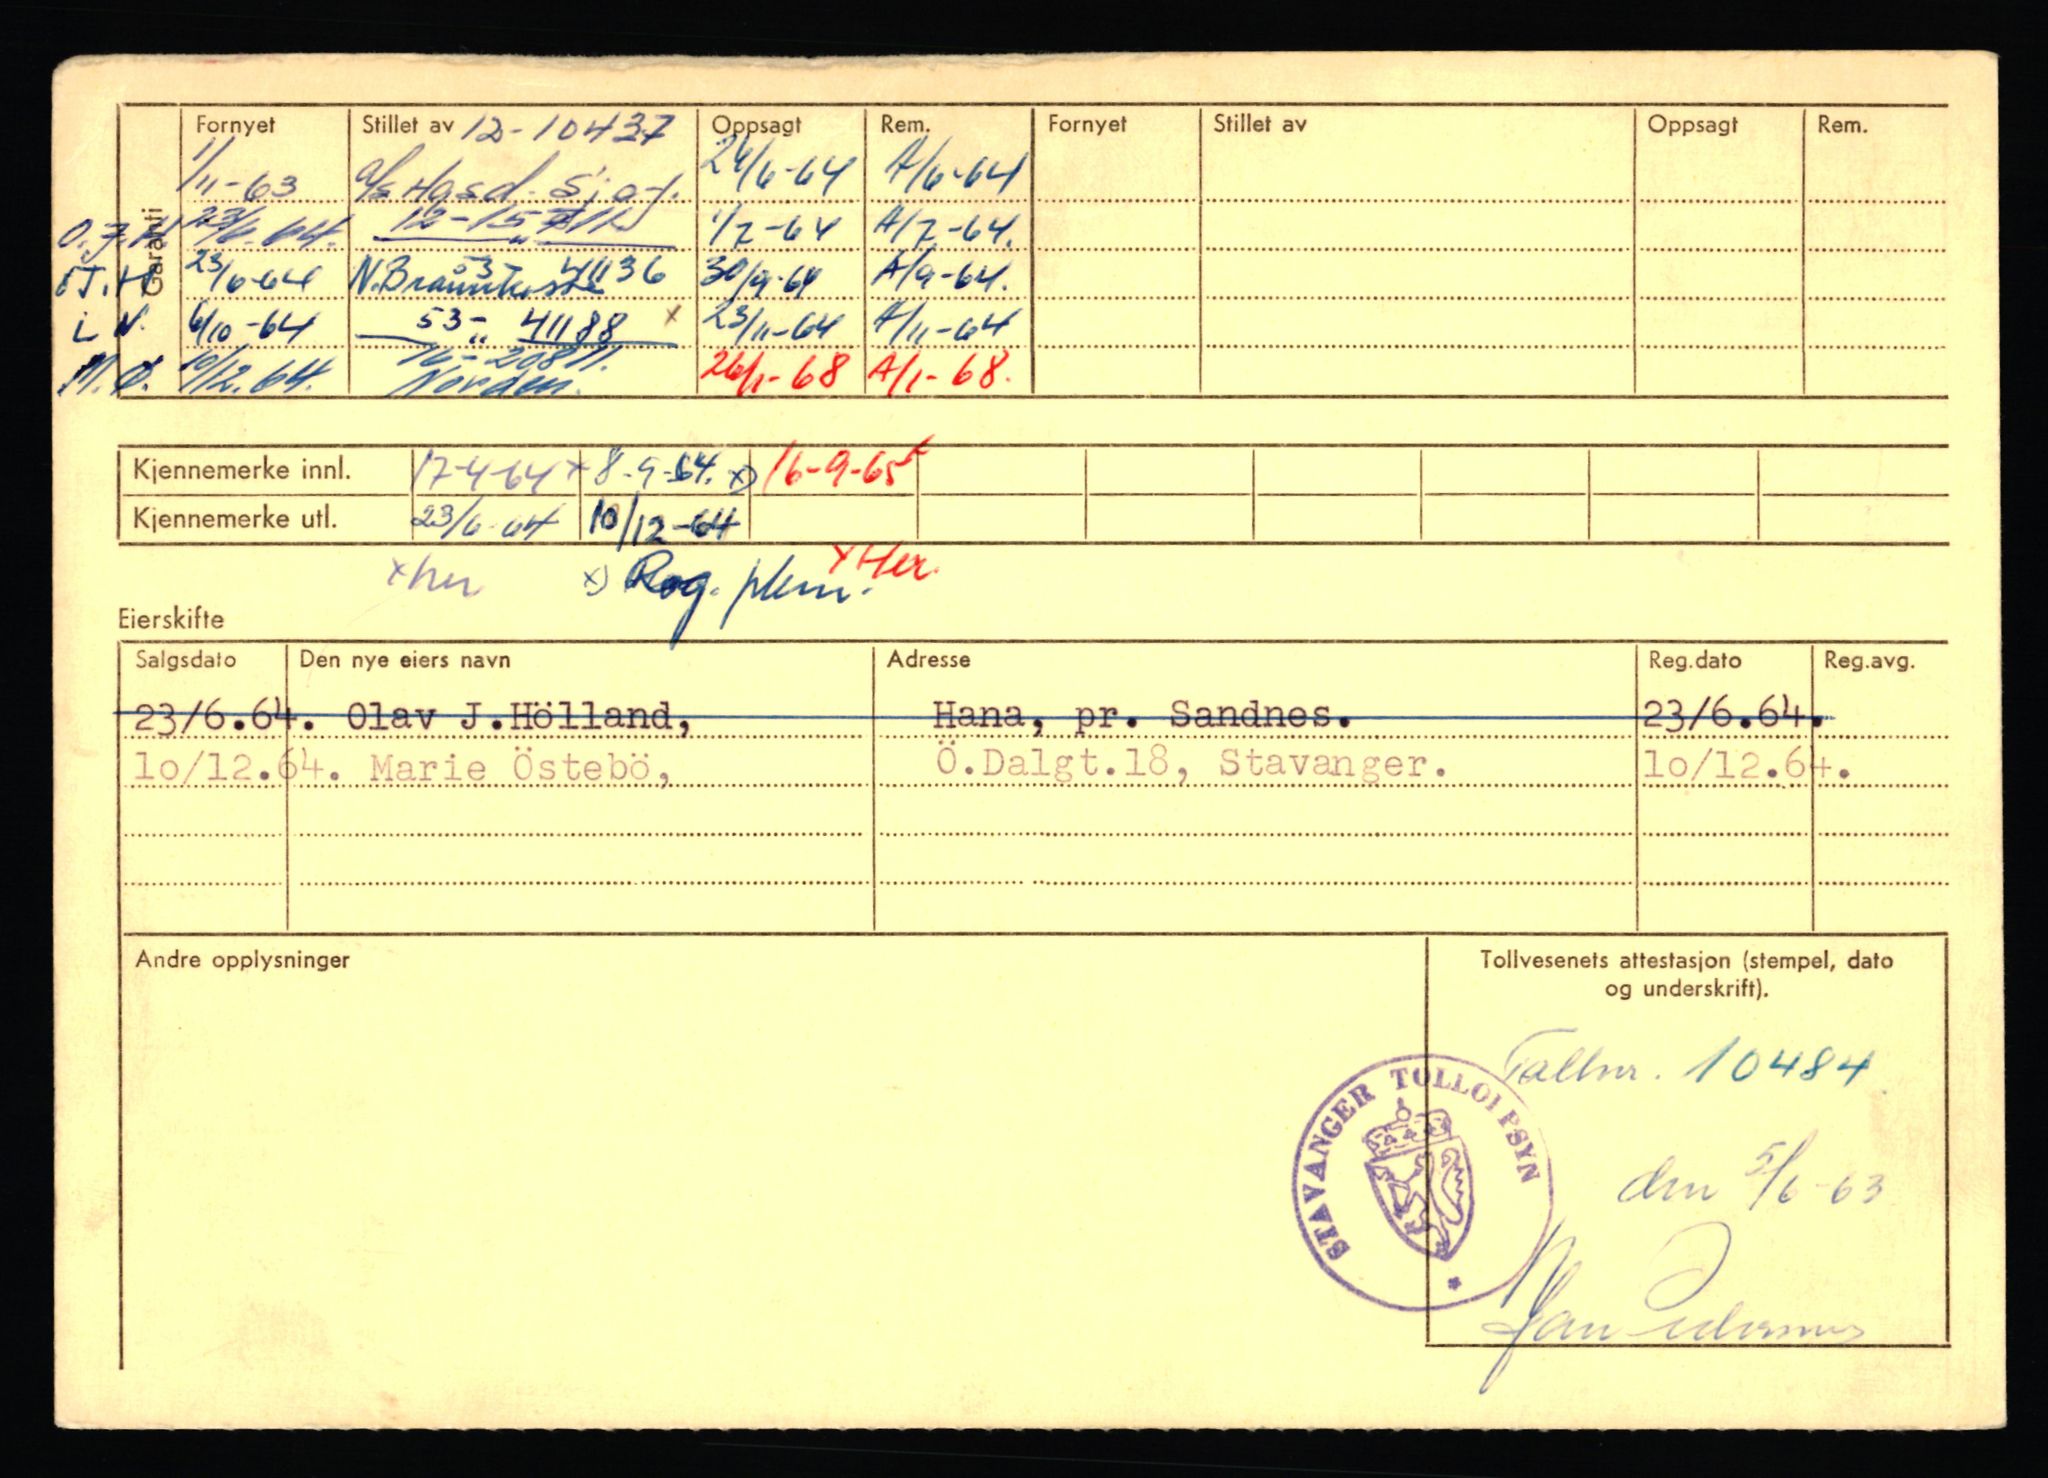 Garanti
Fornyet Stillet av 12-10437 Oppsagt Rem. Fornyet Stillet av Oppsagt Rem.
1/11-63 24/6-64 A/6-64
O.J.H. 23/6-64. 1/7-64 A/7-64.
23/6-64 N. Brannkasse 53- 41136 30/9-64 A/9-64.
6/10-64 53- 41188 x 23/11-64 A/11-64
M.Ø. 10/12.64. Norden. 26/1-68 A/1-68.
Kjennemerke innl. 17-4-64 x 8-9-64. x) 16-9-65 x
Kjennemerke utl. 23/6-64 10/12-64
x her x) Rog. plem. x Her.
Eierskifte
Salgsdato Den nye eiers navn Adresse Reg.dato Reg.avg.
23/6.64. Olav J.Hölland, Hana, pr. Sandnes. 23/6.64.
lo/12.64. Marie Östebö, Ö.Dalgt.18, Stavanger. lo/12.64.
Andre opplysninger
Tollvesenets attestasjon (stempel, dato
og underskrift).
Tollnr. 10484
STAVANGER TOLLOPPSYN
den 5/6-63
Jan